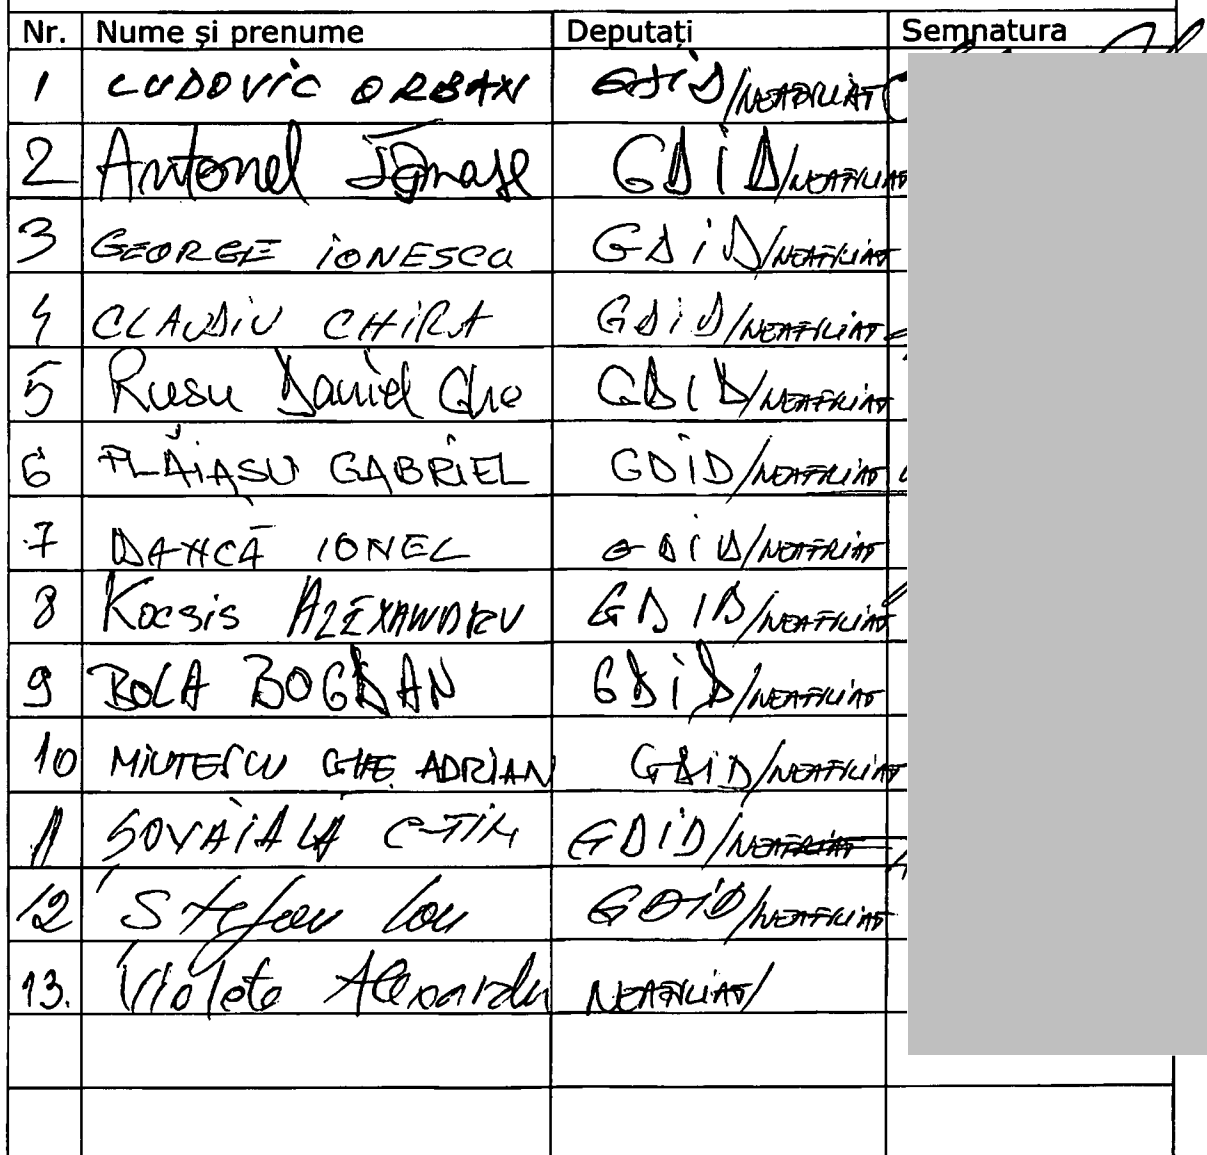 Nr. Nume și prenume Deputați Semnatura
1 LUDOVIC ORBAN GDID/NEAFILIAT
2 Antonel Tănase GDID/NEAFILIAT
3 GEORGE IONESCU GDID/NEAFILIAT
4 CLAUDIU CHIRA GDID/NEAFILIAT
5 Rusu Daniel Ghe GDID/NEAFILIAT
6 PLĂIAȘU GABRIEL GDID/NEAFILIAT
7 DANCĂ IONEL GDID/NEAFILIAT
8 Kocsis ALEXANDRU GDID/NEAFILIAT
9 BOLA BOGDAN GDID/NEAFILIAT
10 MIUȚESCU GHE ADRIAN GDID/NEAFILIAT
11 ȘOVĂIALĂ C-TIN GDID/NEAFILIAT
12 Ștefan Ion GDID/NEAFILIAT
13. Violeta Alexandru NEAFILIAT/